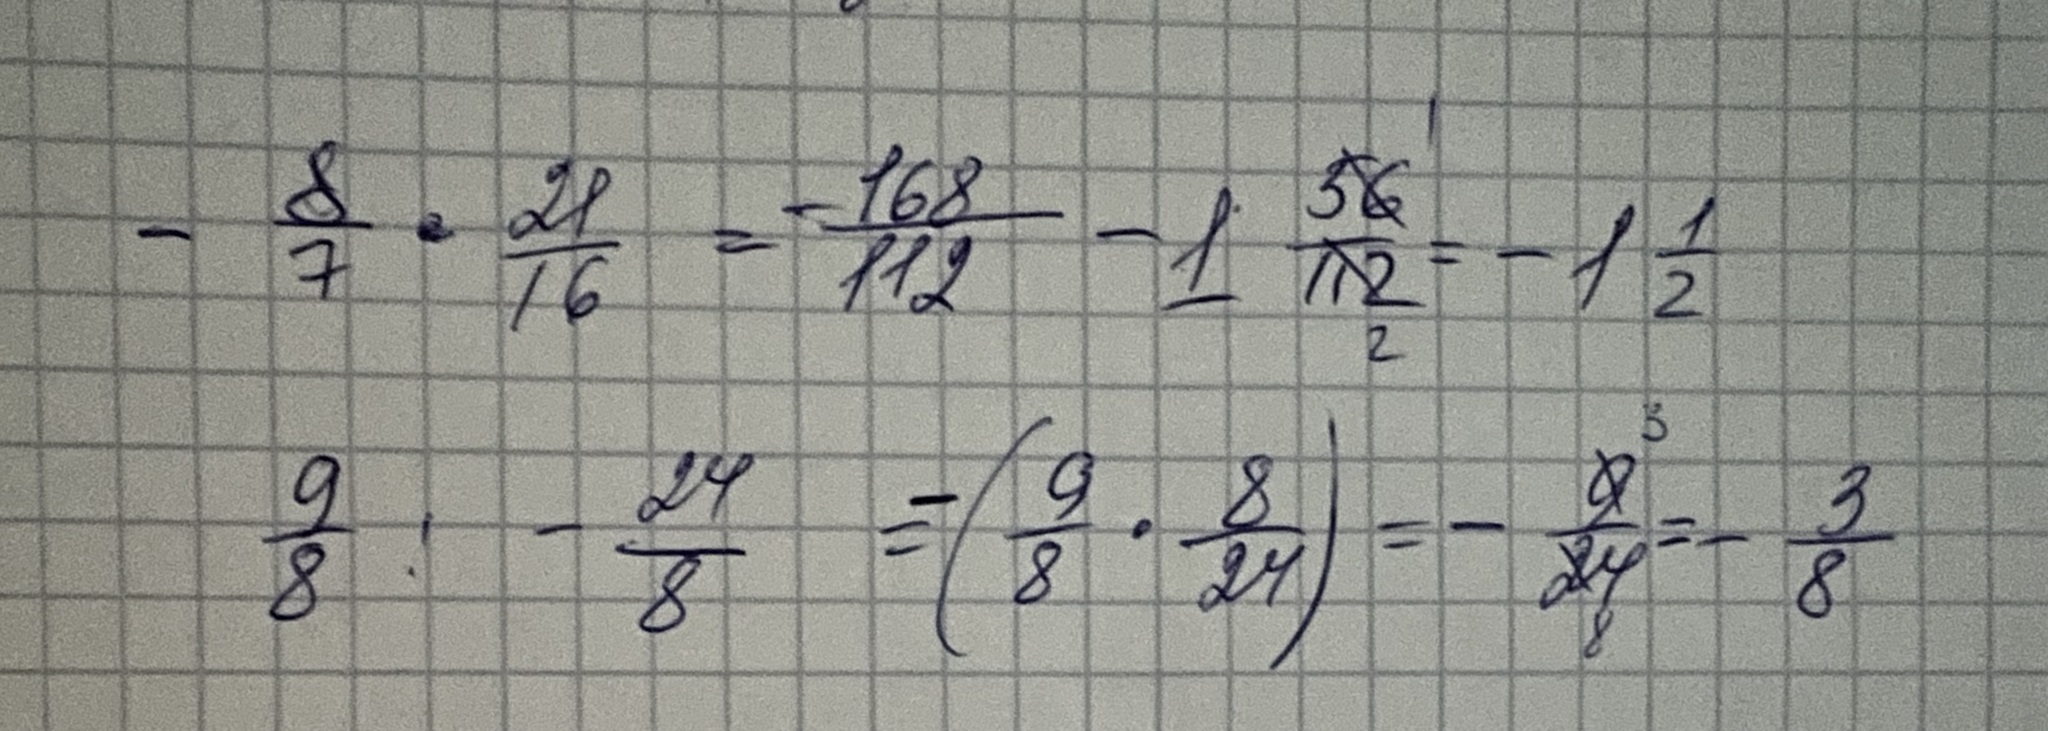 - 8/7 · 21/16 = -168/112 - 1 56/112 1 2 = - 1 1/2
9/8 : - 24/8 = - (9/8 · 8/24) = - 9/24 3 8 = - 3/8